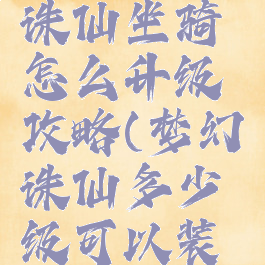 诛仙坐骑
怎么升级
攻略(梦幻
诛仙多少
级可以装